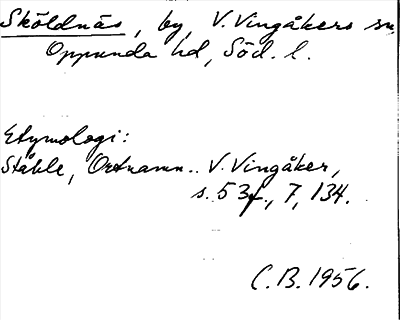 Sköldnäs, by, V. Vingåkers sn,
Oppunda hd, Söd. l.
Etymologi:
Ståhle, Ortnamn.. V. Vingåker,
s. 53f., 7, 134.
C.B. 1956.